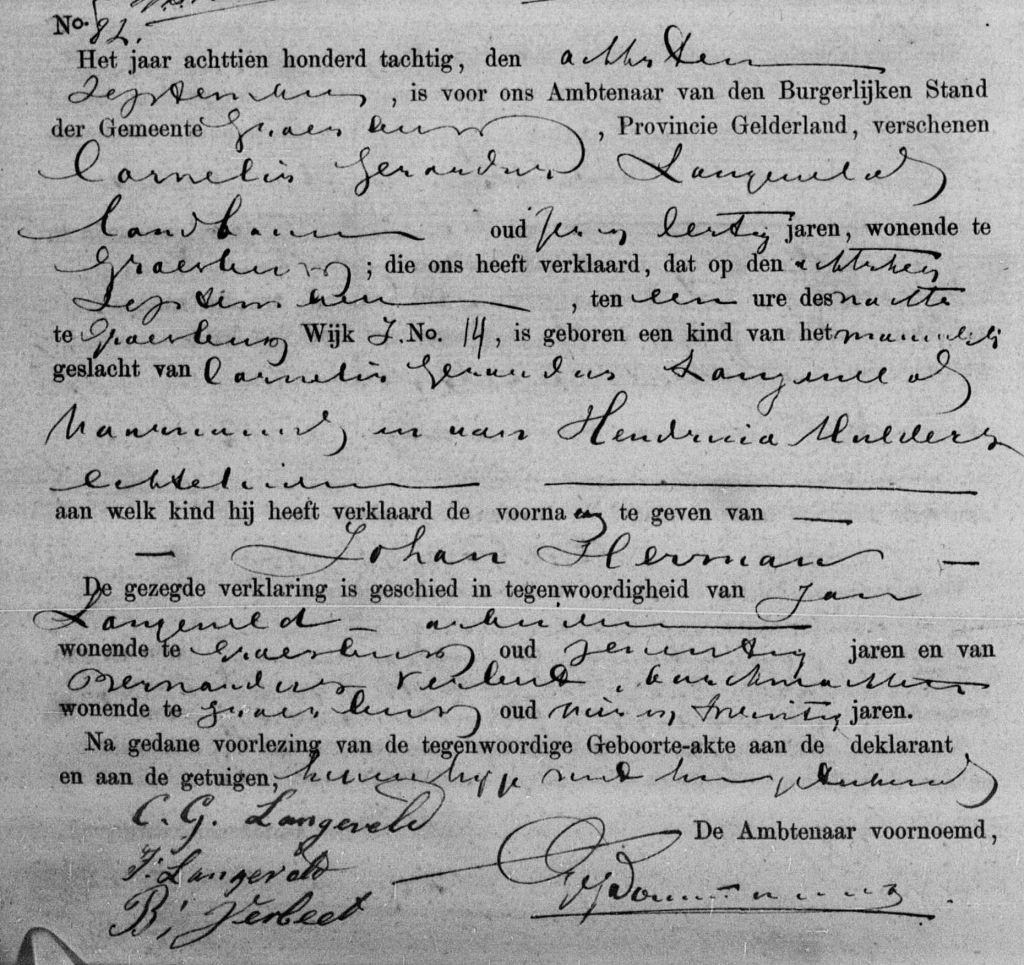 No. 82.
Het jaar achttien honderd tachtig, den achtsten
September, is voor ons Ambtenaar van den Burgerlijken Stand
der Gemeente Groesbeek, Provincie Gelderland, verschenen
Cornelis Gerardus Langeveld
landbouwer oud zes en dertig jaren, wonende te
Groesbeek; die ons heeft verklaard, dat op den achtsten
September, ten een ure des nachts
te Groesbeek Wijk J. No. 14, is geboren een kind van het mannelijk
geslacht van Cornelis Gerardus Langeveld
voornoemd en van Hendrica Mulders
echtelieden
aan welk kind hij heeft verklaard de voornaam te geven van
Johan Herman
De gezegde verklaring is geschied in tegenwoordigheid van Jan
Langeveld arbeider
wonende te Groesbeek oud zeventig jaren en van
Bernardus Verbeet,
wonende te Groesbeek oud en twintig jaren.
Na gedane voorlezing van de tegenwoordige Geboorte-akte aan de deklarant
en aan de getuigen, hebben zij met ons geteekend
C. G. Langeveld
De Ambtenaar voornoemd,
J. Langeveld
B. Verbeet